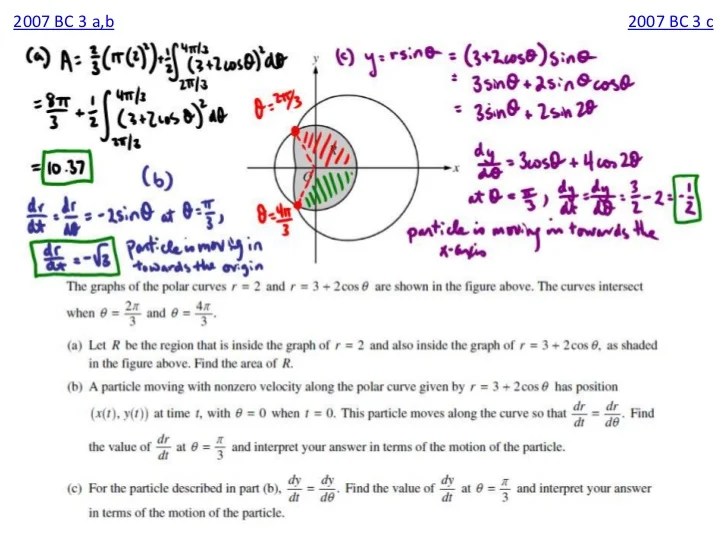 2007 BC 3 a,b
2007 BC 3 c
(a) A = 2/3(π(2)²) + 1/2 ∫_{2π/3}^{4π/3} (3+2cosθ)² dθ
= 8π/3 + 1/2 ∫_{2π/3}^{4π/3} (3+2cosθ)² dθ
= 10.37
(b)
dr/dt = dr/dθ = -2sinθ at θ = π/3,
dr/dt = -√3
Particle is moving in
towards the origin
y
θ = 2π/3
R
O
x
θ = 4π/3
(c) y = rsinθ = (3+2cosθ)sinθ
= 3sinθ + 2sinθcosθ
= 3sinθ + 2sin2θ
dy/dθ = 3cosθ + 4cos2θ
at θ = π/3, dy/dt = dy/dθ = 3/2 - 2 = -1/2
particle is moving in towards the
x-axis
The graphs of the polar curves r = 2 and r = 3 + 2cos θ are shown in the figure above. The curves intersect
when θ = 2π/3 and θ = 4π/3.
(a) Let R be the region that is inside the graph of r = 2 and also inside the graph of r = 3 + 2cos θ, as shaded
in the figure above. Find the area of R.
(b) A particle moving with nonzero velocity along the polar curve given by r = 3 + 2cos θ has position
(x(t), y(t)) at time t, with θ = 0 when t = 0. This particle moves along the curve so that dr/dt = dr/dθ. Find
the value of dr/dt at θ = π/3 and interpret your answer in terms of the motion of the particle.
(c) For the particle described in part (b), dy/dt = dy/dθ. Find the value of dy/dt at θ = π/3 and interpret your answer
in terms of the motion of the particle.